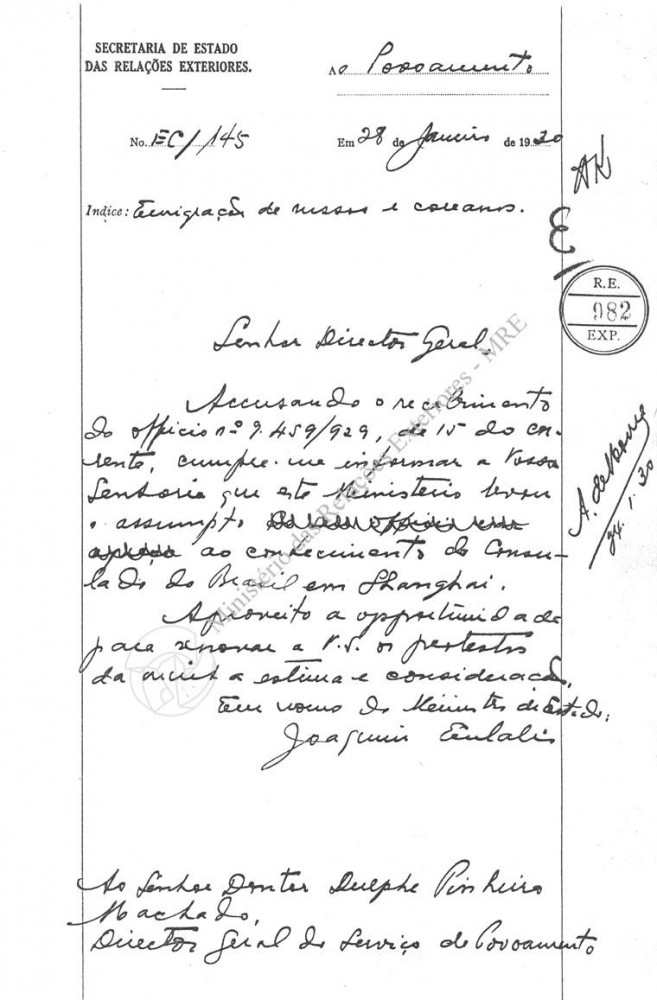 SECRETARIA DE ESTADO
DAS RELAÇÕES EXTERIORES.
Ao Povoamento
No. EC/145
Em 28 de Janeiro de 1930
AK
Indice: Emigração de russos e coreanos.
E
R.E.
982
EXP.
Senhor Director Geral,
Accusando o recebimento
do officio nº 9.459/929, de 15 do cor-
rente, cumpre-me informar a Vossa
Senhoria que este Ministerio levou
o assumpto
ao conhecimento do Consu-
lado do Brasil em Shanghai.
Aproveito a opportunidade
para renovar a V.S. os protestos
da minha estima e consideração.
Em nome do Ministro de Estado:
Joaquim Eulalio
A.
1. 30
Ao Senhor Doutor Dulphe Pinheiro
Machado,
Director Geral do Serviço de Povoamento
Ministério das Relações Exteriores - MRE